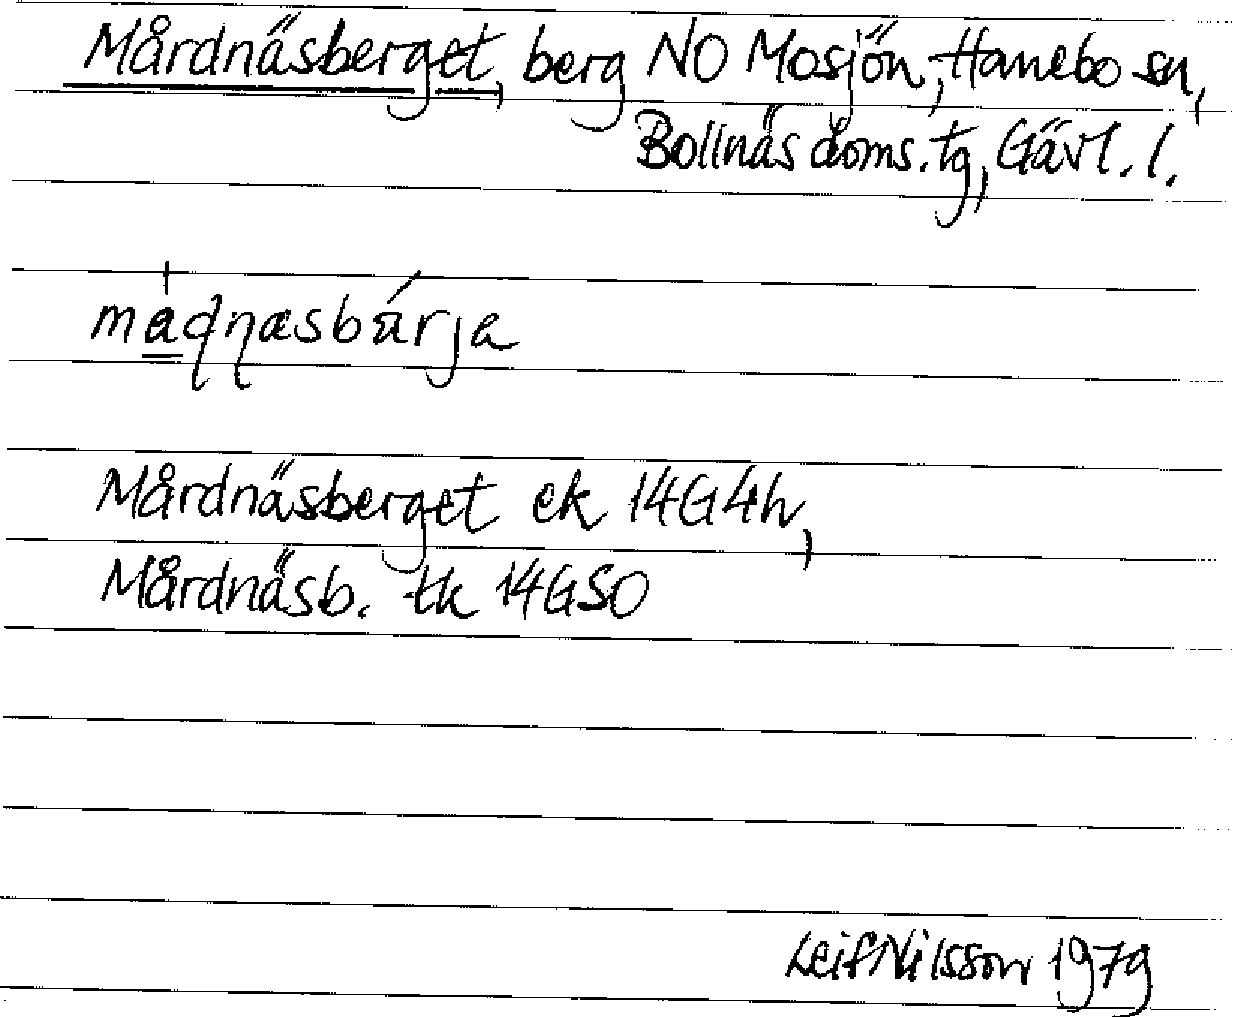 Mårdnäsberget, berg NO Mosjön, Hanebo sn,
Bollnäs doms. tg, Gävl. l.
Mårdnäsberget ek 14G4h,
Mårdnäsb. tk 14GSO
Leif Nilsson 1979